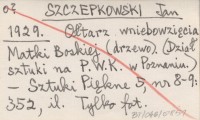 SZCZEPKOWSKI Jan
1929. Ołtarz wniebowzięcia
Matki Boskiej (drzewo) (Dział
sztuki na P.W.K. w Poznaniu.)
— Sztuki Piękne 5, nr 8-9:
352, il. Tylko fot.